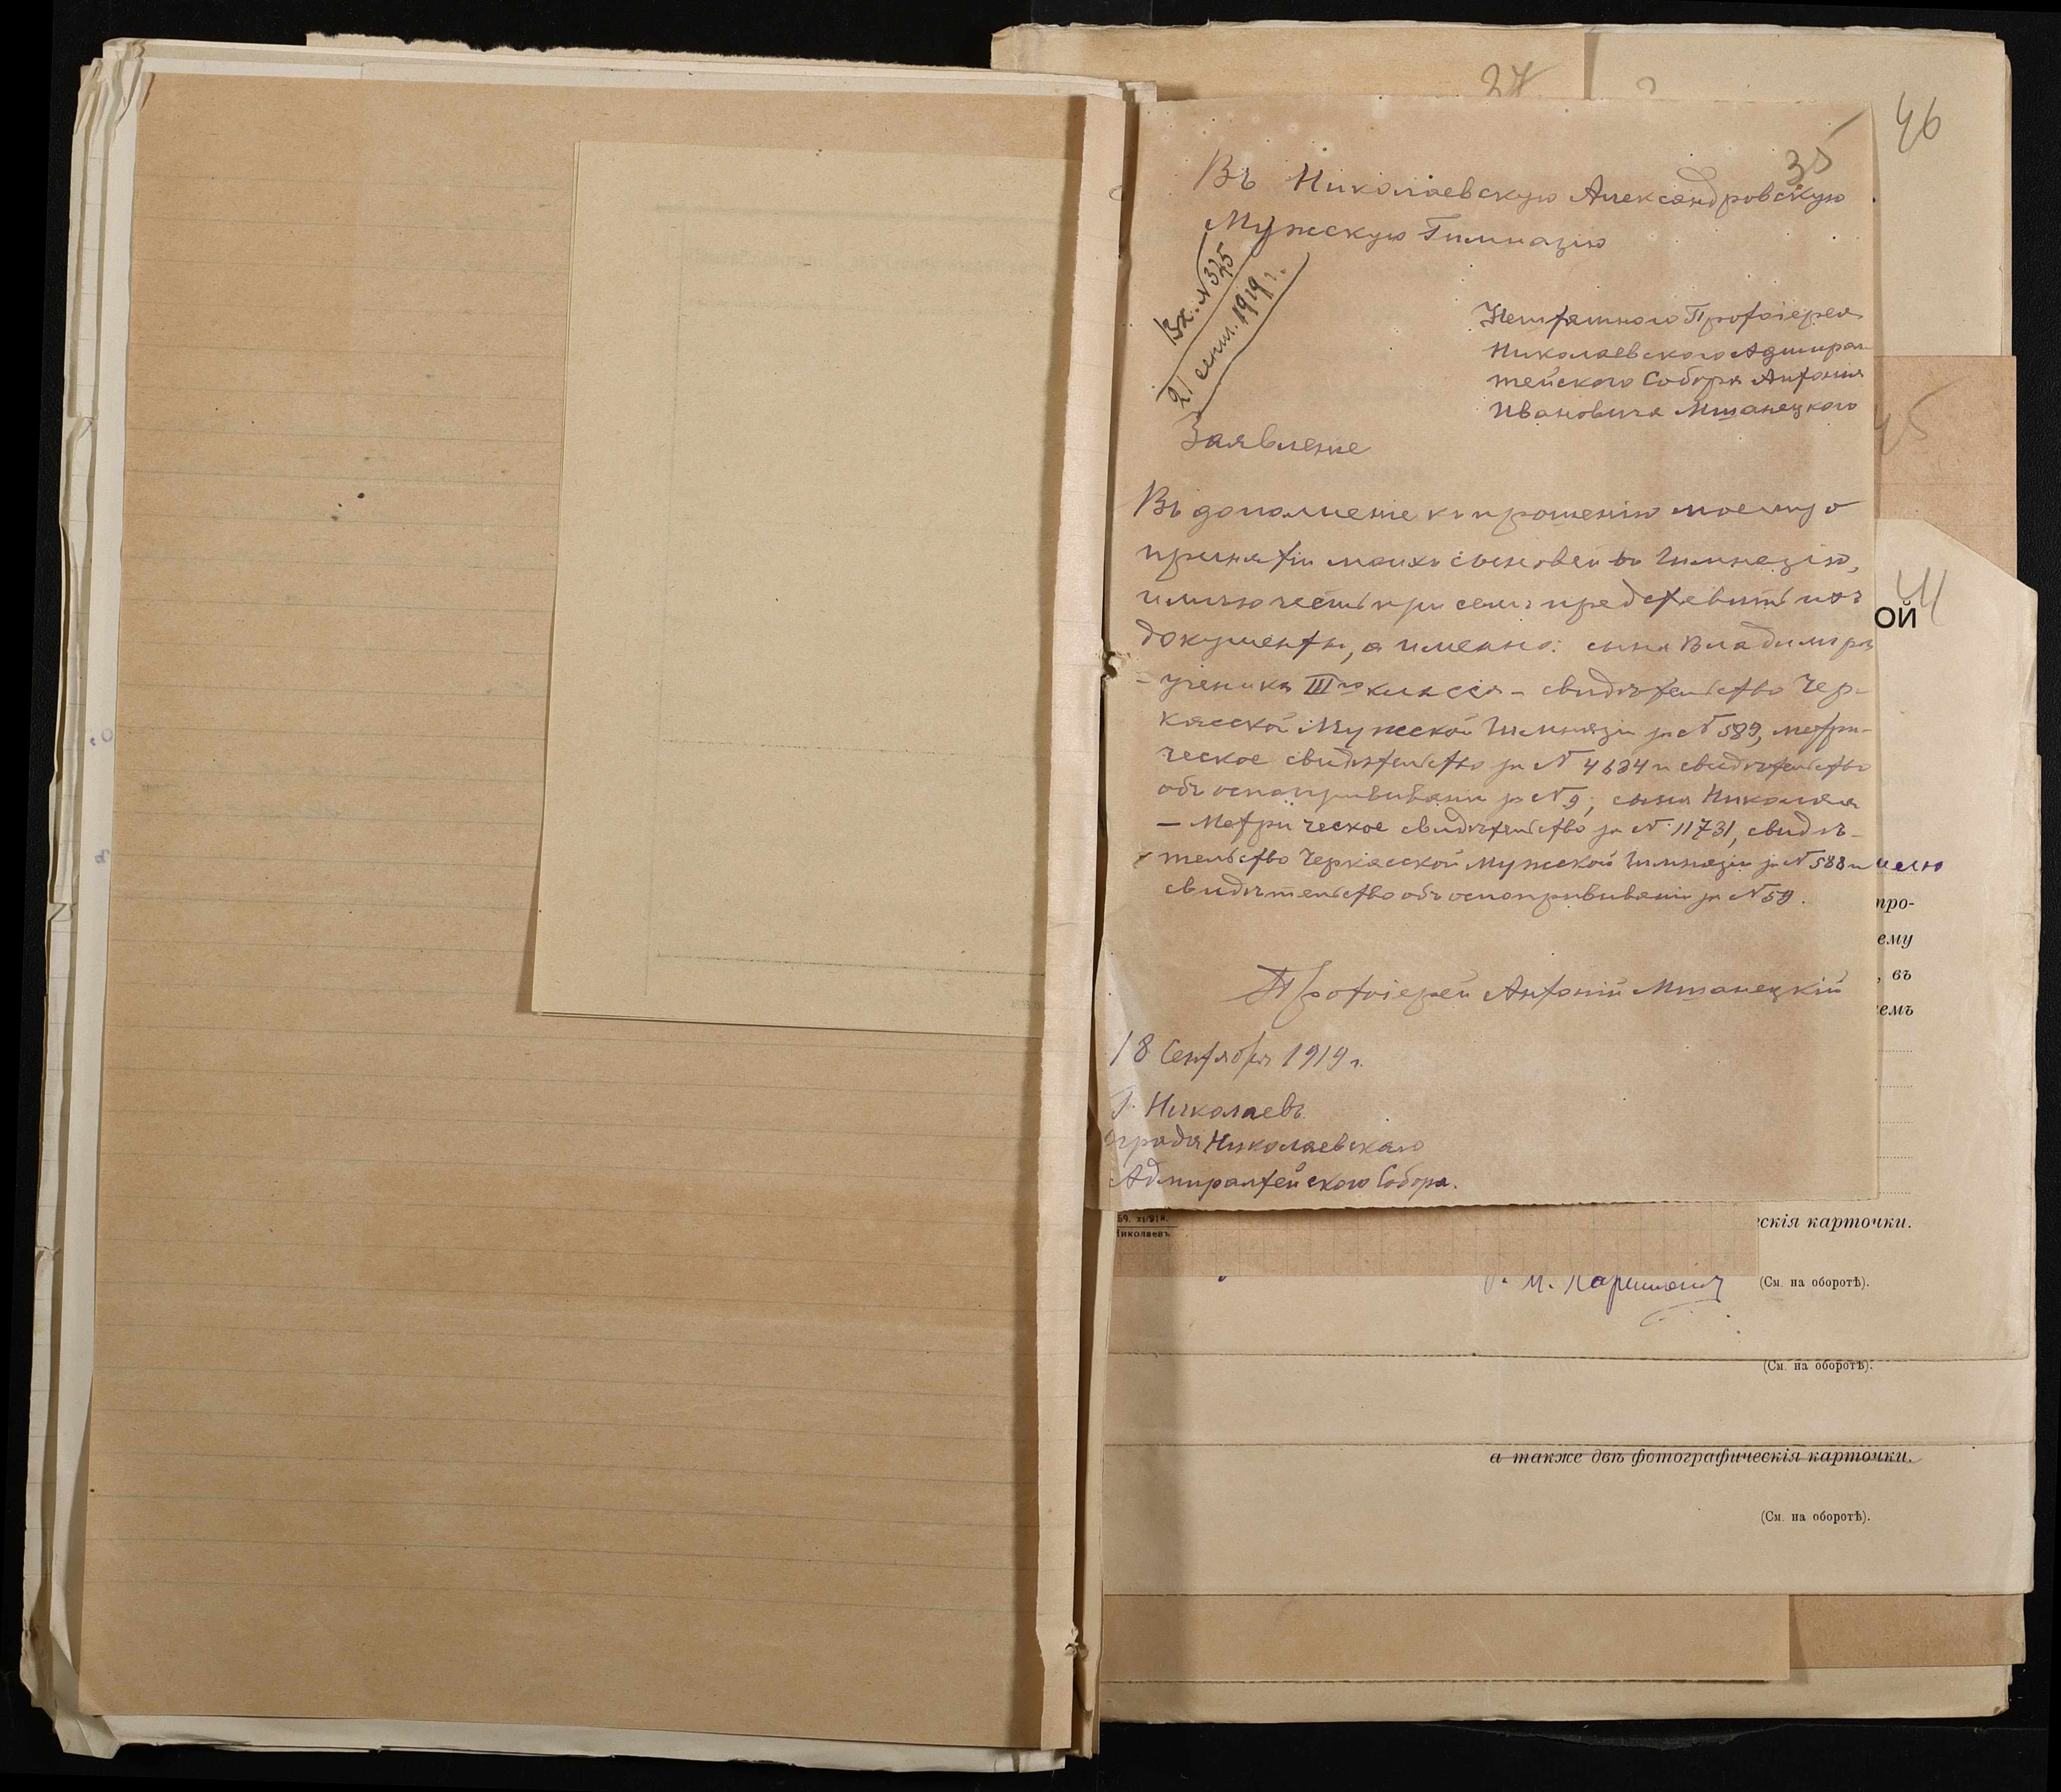 46
35
Въ Николаевскую Александровскую
Мужскую Гимназію
Вх. № 325
21 сент. 1919 г.
Нештатного Протоіерея
Николаевского Адмирал
тейского Собора Антонія
Ивановича Мшанецкого
Заявленіе
Въ дополненіе къ прошенію моему о
принятіи моихъ сыновей въ Гимназію,
имѣю честь при семъ представить ихъ
документы, а именно: сына Владимира
- ученика III го класса - свидѣтельство Чер-
касской Мужской Гимназіи за № 589, метри-
ческое свидѣтельство за № 4634 и свидѣтельство
объ оспопрививаніи за № 9, сына Николая
- Метрическое свидѣтельство за № 11731, свидѣ-
тельство Черкасской Мужской Гимназіи за № 588 и
свидѣтельство объ оспопрививаніи за № 59.
Протоіерей Антоній Мшанецкій
18 Сентября 1919 г.
Г. Николаевъ
ограда Николаевскаго
Адмиралтейского Собора.
41
ОЙ
про-
ему
, въ
емъ
иколаевъ
скія карточки.
(См. на оборотѣ).
(См. на оборотѣ).
а также двѣ фотографическія карточки.
(См. на оборотѣ).